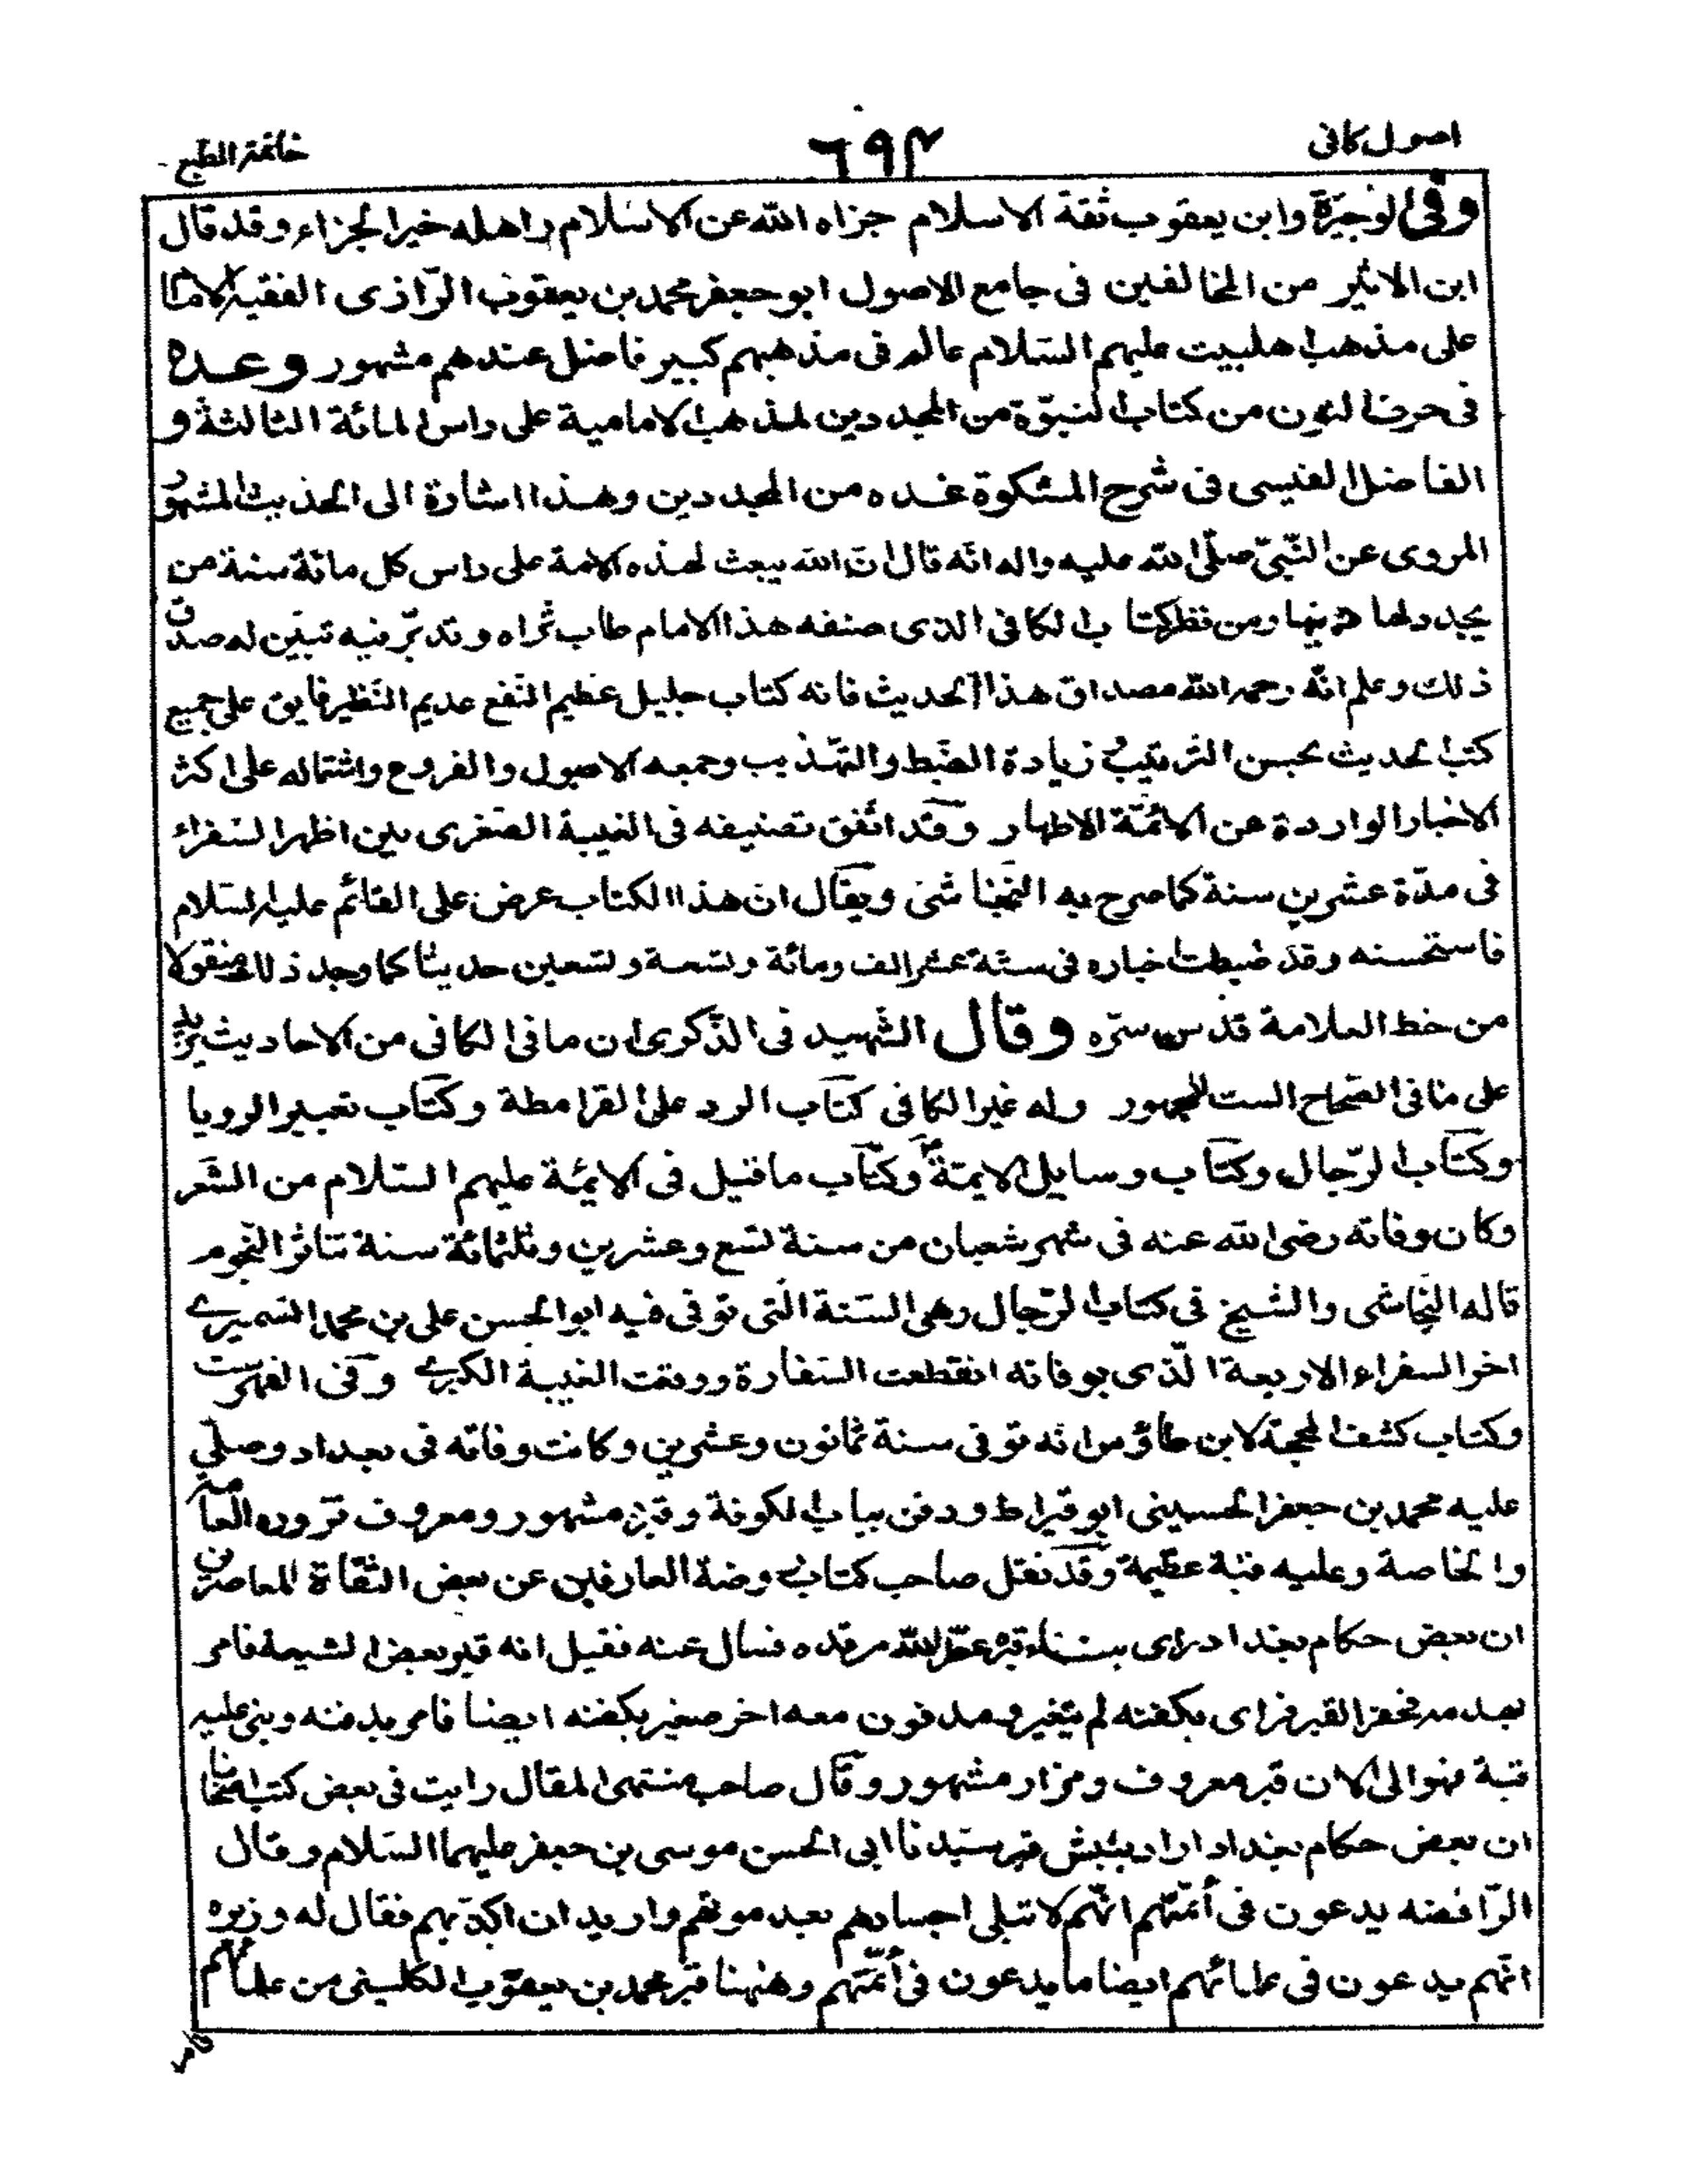 اصول كافى
٦٩٣
خاتمة الطبع
وفى الوجيزة وابن يعقوب ثقة الاسلام جزاه الله عن الاسلام واهله خير الجزاء وقد قال
ابن الاثير من المخالفين فى جامع الاصول ابو جعفر محمد بن يعقوب الرّازى الفقيه الامام
على مذهب اهلبيت عليهم السّلام عالم فى مذهبهم كبير فاضل عندهم مشهور وعده
فى حرف النون من كتاب النبوّة من المجددين لمذهب الامامية على راس المائة الثالثة و
الفاضل الفتيسى فى شرح المشكوة عده من المجددين وهذا اشارة الى الحديث المشهور
المروى عن النّبىّ صلّى الله عليه واله انّه قال انّ الله يبعث لهذه الامة على راس كل مائة سنة من
يجدد لها دينها ومن نظر كتاب الكافى الذى صنفه هذا الامام طاب ثراه وتدبّر فيه تبيّن له صدق
ذلك وعلم انّه رحمه الله مصداق هذا الحديث فانه كتاب جليل عظيم النّفع عديم النّظير فايق على جميع
كتب الحديث بحسن الترتيب و زيادة الضّبط والتهّذيب وجمعه الاصول والفروع واشتماله على اكثر
الاخبار الواردة عن الائمّة الاطهار وقد اتّفق تصنيفه فى الغيبة الصّغرى بين اظهر السّفراء
فى مدّة عشرين سنة كما صرح به النّجاشى ويقال ان هذا الكتاب عرض على القائم عليه السّلام
فاستحسنه وقد ضبطت اخباره فى ستّة عشر الف ومائة وتسعة وتسعين حديثا كما وجد ذلك منقولا
من خط العلامة قدّس سرّه وقال الشّهيد فى الذّكرى ان ما فى الكافى من الاحاديث يزيد
على ما فى الصّحاح الست للجمهور وله غير الكافى كتاب الرد على القرامطة وكتاب تعبير الرويا
وكتاب الرّجال وكتاب وسايل الايمّة وكتاب ما قيل فى الايمّة عليهم السّلام من الشّعر
وكان وفاته رضى الله عنه فى شهر شعبان من سنة تسع وعشرين وثلثمائة سنة تناثر النّجوم
قاله النّجاشى والشّيخ فى كتاب الرّجال وهى السّنة الّتى توفى فيه ابو الحسن على بن محمد السّميرى
اخر السفراء الاربعة الّذى بوفاته انقطعت السّفارة ووقعت الغيبة الكبرى وفى الفهرست
وكتاب كشف المحجة لابن طاؤس انه توفى سنة ثمانون وعشرين وكانت وفاته فى بغداد وصلّى
عليه محمد بن جعفر الحسينى ابو قيراط ودفن بباب الكوفة وقبره مشهور ومعروف تزوره العامة
والخاصة وعليه قبة عظيمة وقد نقل صاحب كتاب روضة العارفين عن بعض الثقاة المعاصرين
ان بعض حكام بغداد راى بناء قبره عطّر الله مرقده فسال عنه فقيل انه قبر بعض الشيعة فامر
بهدمه فحفر القبر فراى بكفنه لم يتغير ومدفون معه اخر صغير بكفنه ايضا فامر بدفنه وبنى عليه
قبة فهو الى الان قبر معروف ومزار مشهور وقال صاحب منتهى المقال رايت فى بعض كتب اصحابنا
ان بعض حكام بغداد اراد ينبش قبر سيّدنا ابى الحسن موسى بن جعفر عليهما السّلام وقال
الرّافضه يدعون فى أئمّتهم انّهم لا تبلى اجسادهم بعد موتهم واريد ان اكذّبهم فقال له وزيره
انّهم يدعون فى علمائهم ايضا ما يدعون فى أئمّتهم وههنا قبر محمد بن يعقوب الكلينى من علمائهم